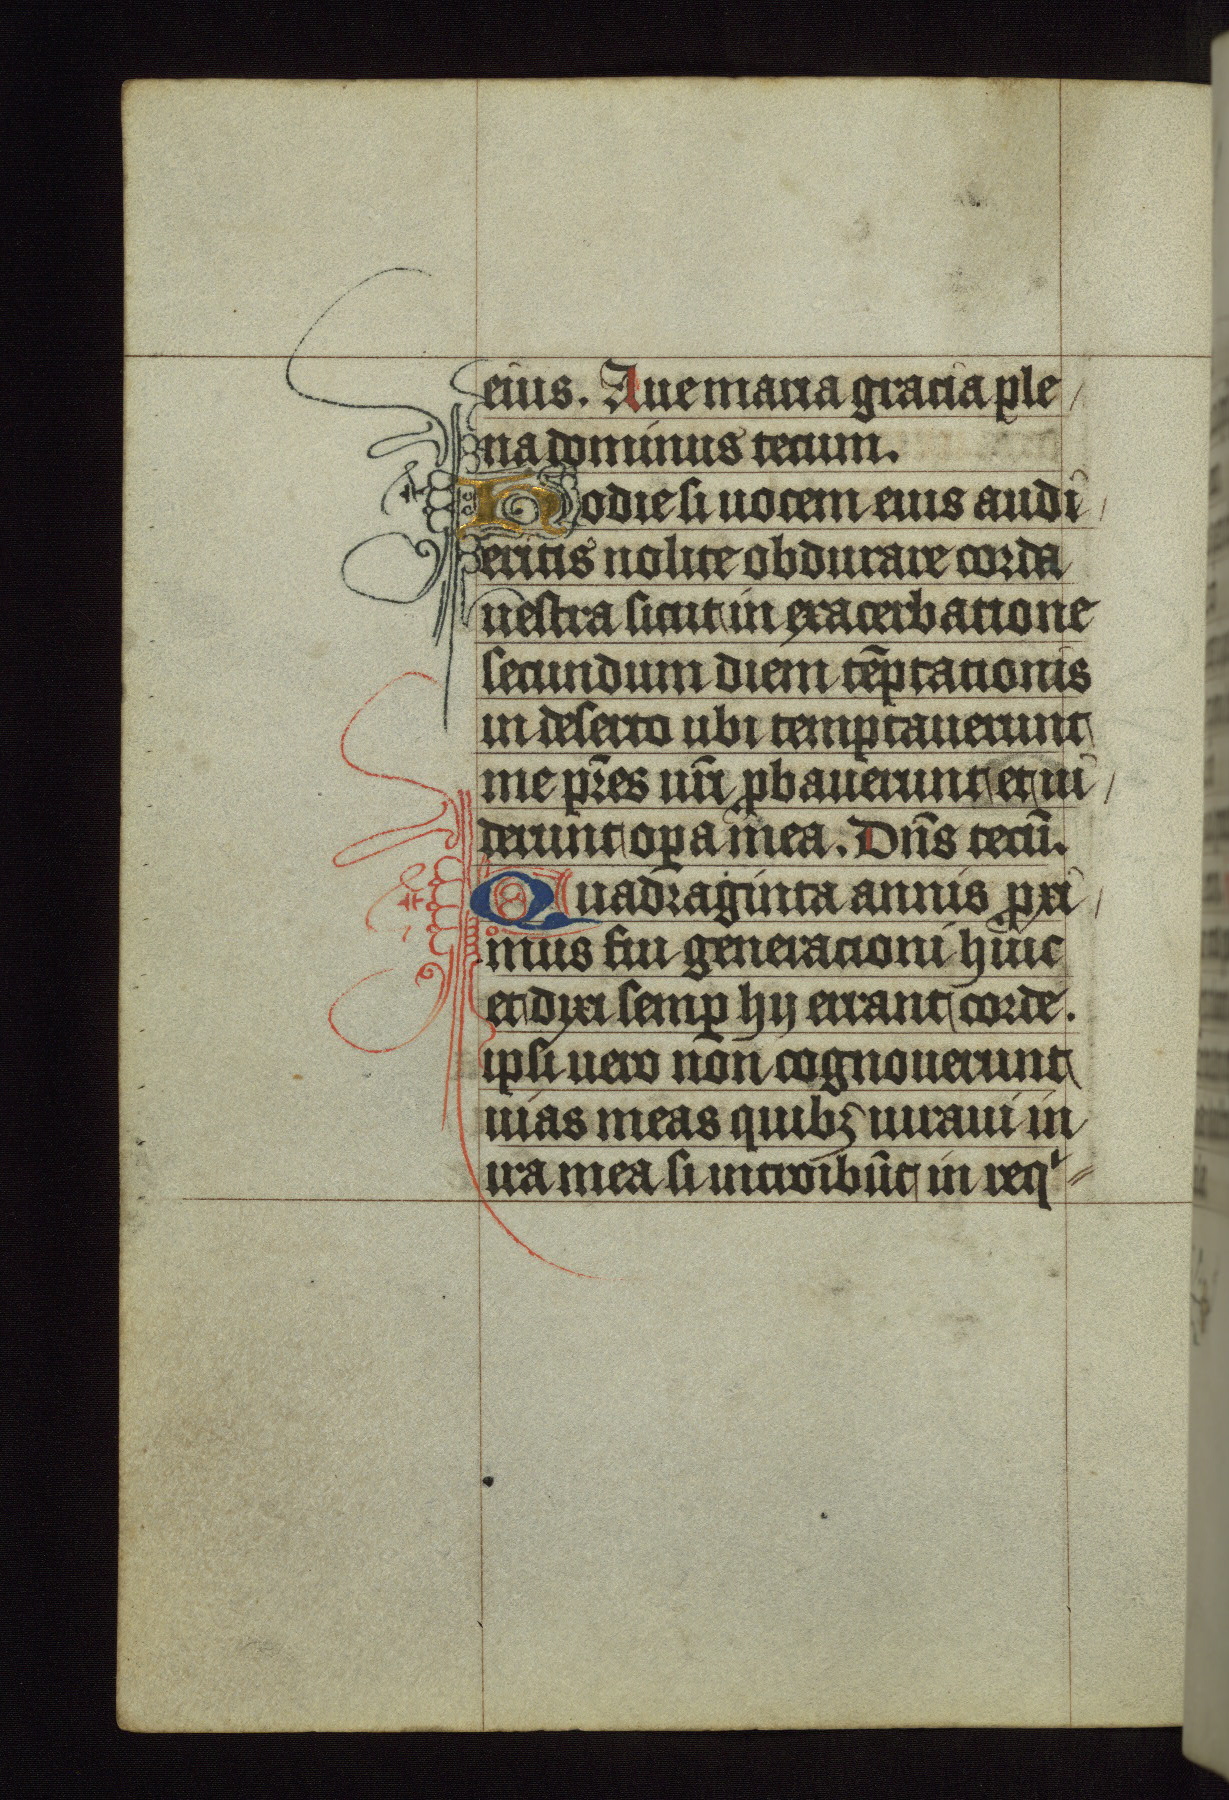 eius. Aue maria gracia ple
na dominus tecum.
Hodie si uocem eius audi
eritis nolite obdurare corda
uestra sicut in exacerbatione
secundum diem te̅ptationis
in deserto ubi temptauerunt
me pr̅es ur̅i ꝓbauerunt et ui
derunt oꝑa mea. Dn̅s tecu̅.
Quadraginta annis ꝓxi
mus fui generacioni huic
et dixi semꝑ hij errant corde.
ipsi uero non cognouerunt
uias meas quibꝫ iuraui in
ira mea si introibu̅t in reqⁱ